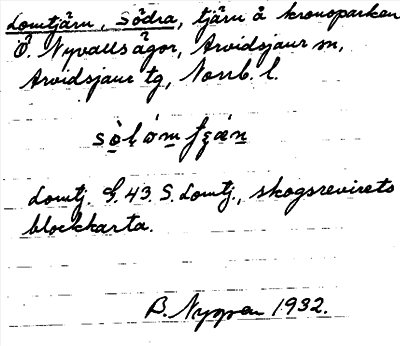 Lomtjärn, Södra, tjärn å kronoparken
Ö. Nyvalls ägor, Arvidsjaur sn,
Arvidsjaur tg, Norrb. l.
Lomtj. G. 43. S. Lomtj., skogsrevirets
blockkarta.
B. Nygren 1932.